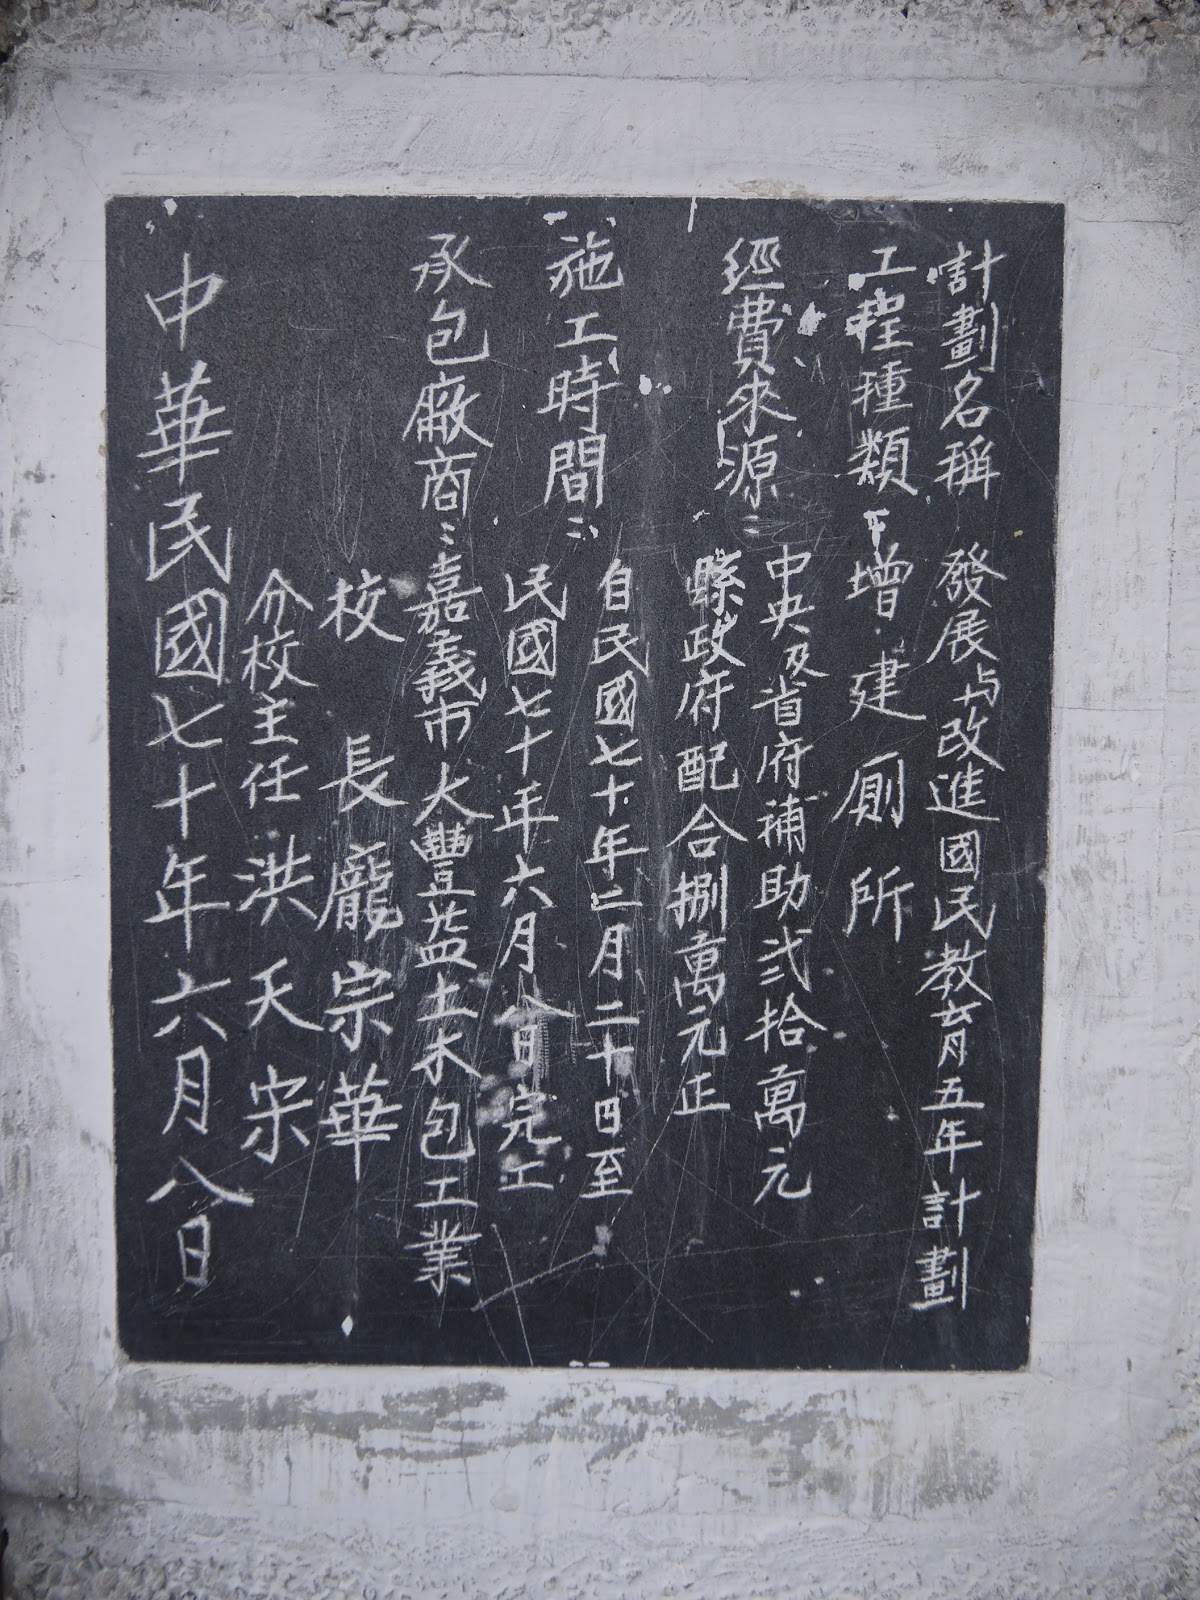 計劃名稱 發展与改進國民教育五年計劃
工程種類：增建厠所
經費來源：中央及省府補助弍拾萬元
縣政府配合捌萬元正
施工時間：自民國七十年二月二十四至
民國七十年六月八日完工
承包廠商：嘉義市大豐益土木包工業
校 長 龐宗華
分校主任 洪天宗
中華民國七十年六月八日